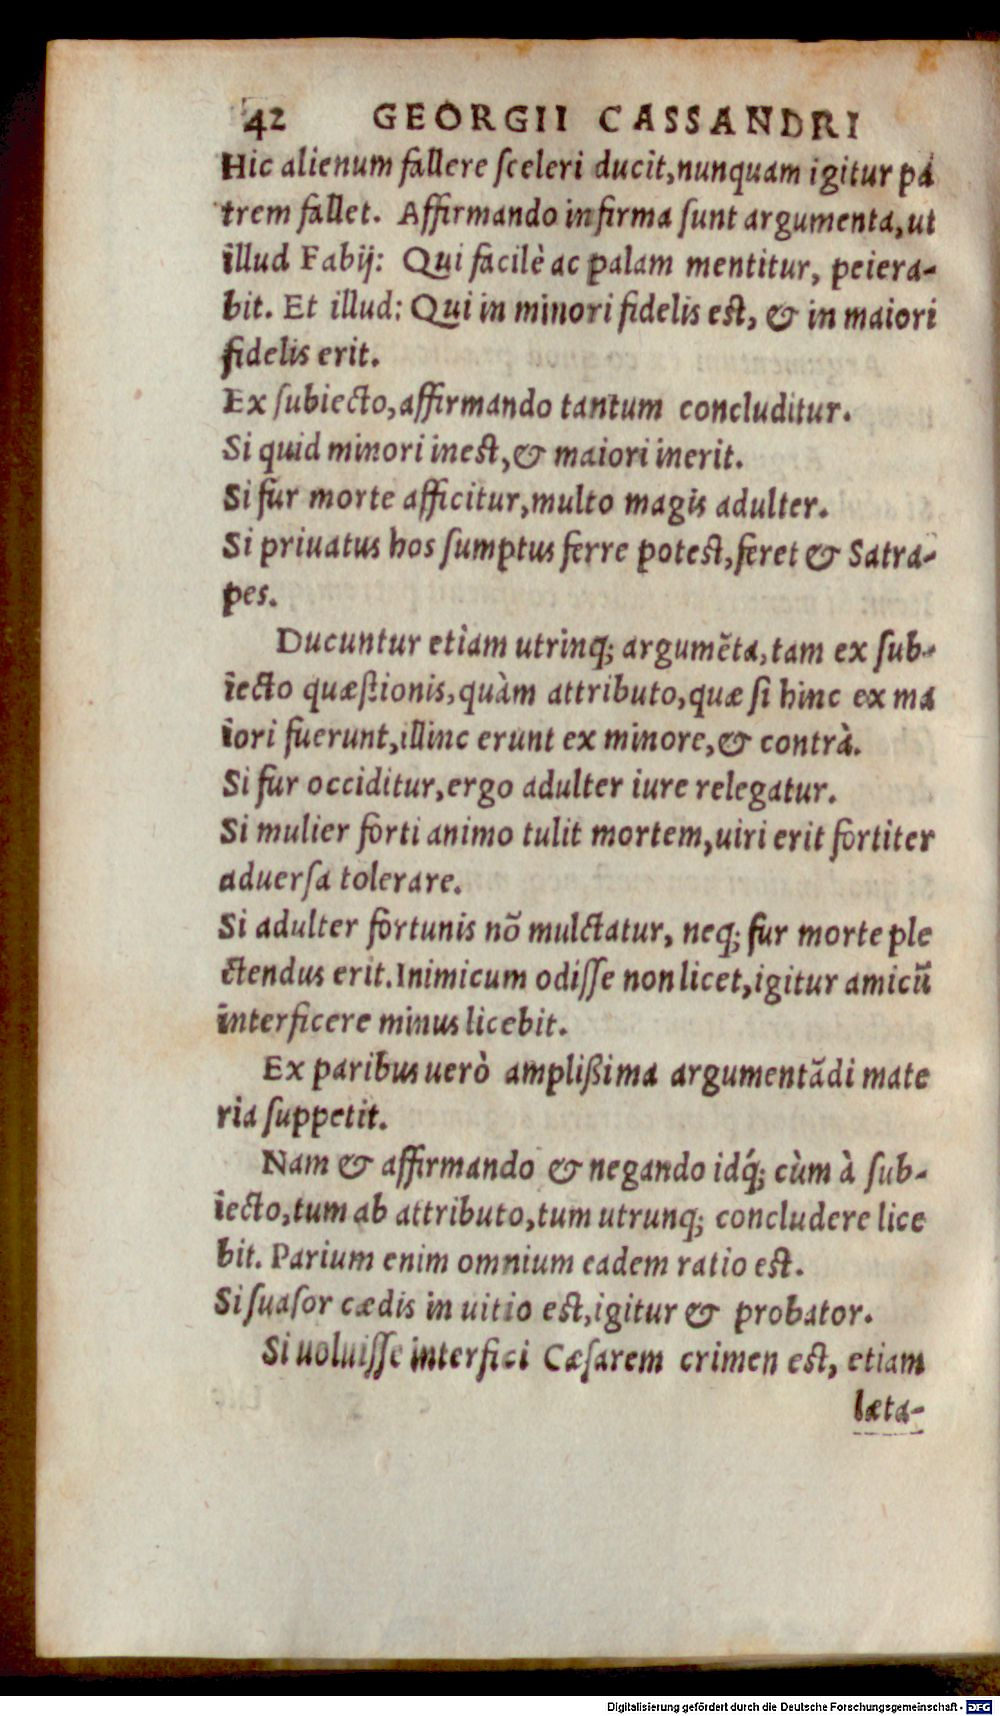 42 GEORGII CASSANDRI
Hic alienum fallere sceleri ducit,nunquam igitur pa
trem fallet. Affirmando infirma sunt argumenta,ut
illud Fabij: Qui facilè ac palam mentitur, peiera-
bit. Et illud: Qui in minori fidelis est, & in maiori
fidelis erit.
Ex subiecto,affirmando tantum concluditur.
Si quid minori inest,& maiori inerit.
Si fur morte afficitur,multo magis adulter.
Si priuatus hos sumptus ferre potest,feret & Satra-
pes.
Ducuntur etiam utrinq; argumẽta,tam ex sub-
iecto quæstionis,quàm attributo,quæ si hinc ex ma
iori fuerunt,illinc erunt ex minore,& contrà.
Si fur occiditur,ergo adulter iure relegatur.
Si mulier forti animo tulit mortem,uiri erit fortiter
aduersa tolerare.
Si adulter fortunis nõ mulctatur, neq; fur morte ple
ctendus erit.Inimicum odisse non licet,igitur amicũ
interficere minus licebit.
Ex paribus uerò amplißima argumentãdi mate
ria suppetit.
Nam & affirmando & negando idq́; cùm à sub-
iecto,tum ab attributo,tum utrunq; concludere lice
bit. Parium enim omnium eadem ratio est.
Si suasor cædis in uitio est,igitur & probator.
Si uoluisse interfici Cæsarem crimen est, etiam
læta-
Digitalisierung gefördert durch die Deutsche Forschungsgemeinschaft - DFG